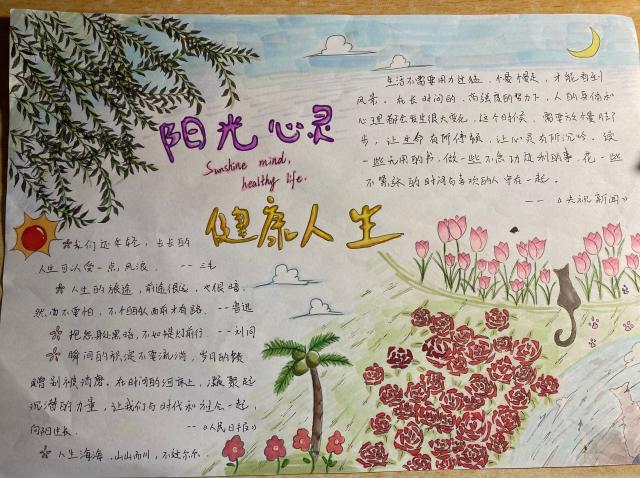 阳光心灵
Sunshine mind,
healthy life.
健康人生
生活不需要用力过猛,慢慢走,才能看到
风景。在长时间的、高强度的努力下,人的身体和
心理都会发生很大变化,这个时候,需要放慢脚
步,让生命有所停顿,让心灵有所沉吟。读
一些无用的书,做一些不急功近利的事,花一些
不紧张的时间与喜欢的人守在一起。
——《央视新闻》
我们还年轻,长长的
人生可以受一点风浪。——三毛
人生的旅途,前途很远,也很暗。
然而不要怕,不怕的人面前才有路。——鲁迅
把怨身处黑暗,不如提灯前行。——刘同
瞬间的 不要流淌,岁月的
赠别被清磨。在时间的河床上,凝聚起
沉潜的力量,让我们与时代和社会一起,
向阳生长。——《人民日报》
人生海海,山山而川,不过尔尔。